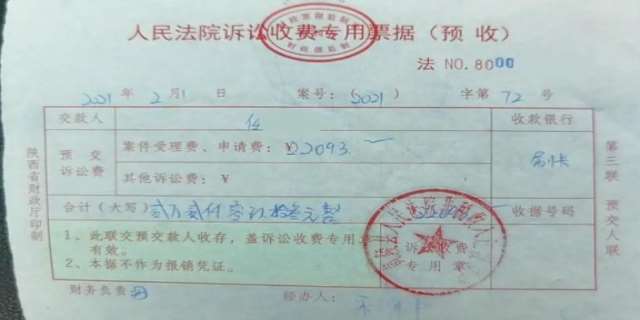 人民法院诉讼收费专用票据（预收）
法 NO.8000
2021年2月1日 案号：（2021） 字第72号
交款人 任 收款银行
预交诉讼费 案件受理费、申请费：¥22093.
其他诉讼费：¥
合计（大写）贰万贰仟零玖拾叁元整 收据号码
1、此联交预交款人收存，盖诉讼收费专用
有效。
2、本据不作为报销凭证。
财务负责 经办人：
陕西省财政厅印制
第三联 预交人联
诉讼收费
专用章